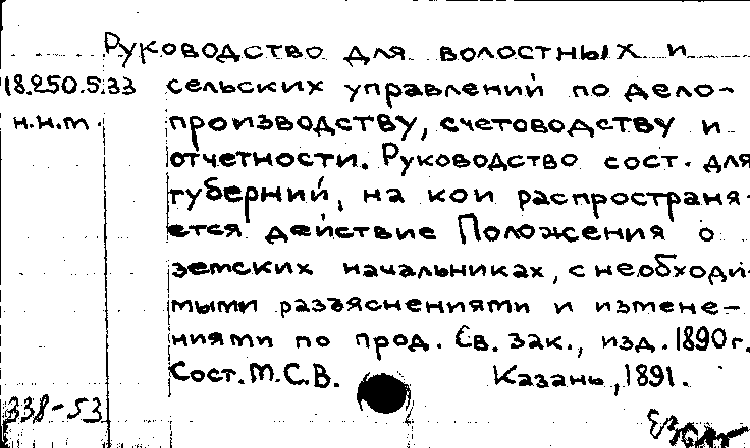 Руководство для волостных и
18.250.5.33 сельских управлений по дело-
н.н.т. производству, счетоводству и
отчетности. Руководство сост. для
губерний, на кои распространя-
ется действие Положения о
земских начальниках, с необходи-
мыми разъяснениями и измене-
ниями по прод. Св. Зак., изд. 1890 г.
Сост. М.С.В. Казань, 1891.
338-53